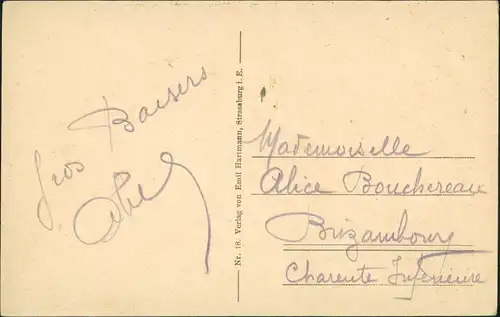 Gros Baisers
Abel
Nr. 18. Verlag von Emil Hartmann, Strassburg i. E.
Mademoiselle
Alice Bouchereau
Brizambourg
Charente Inférieure